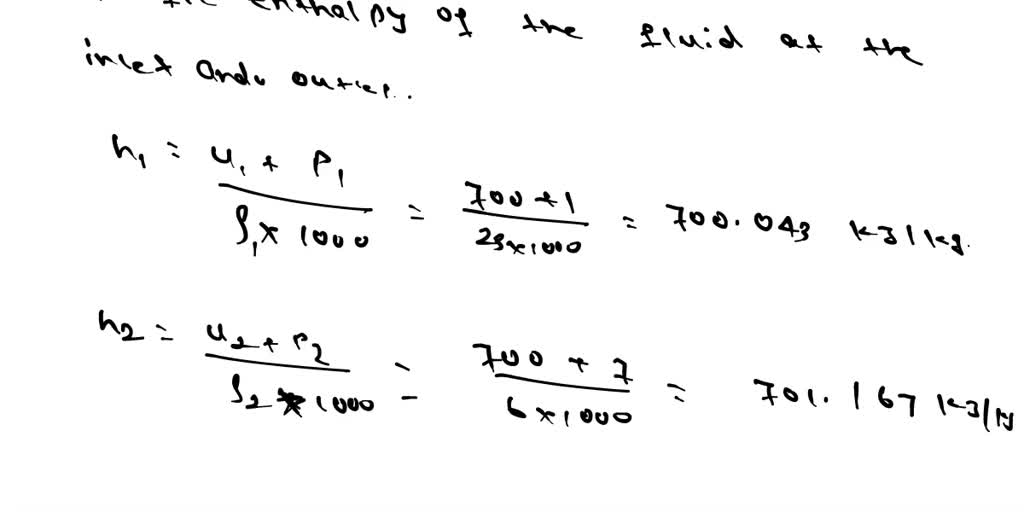 enthalpy of the fluid at the
inlet and outlet.
h₁ = u₁ + P₁ / ρ₁ × 1000 = 700 + 1 / 23 × 1000 = 700.043 kJ/kg.
h₂ = u₂ + P₂ / ρ₂ × 1000 = 700 + 7 / 6 × 1000 = 701.167 kJ/kg